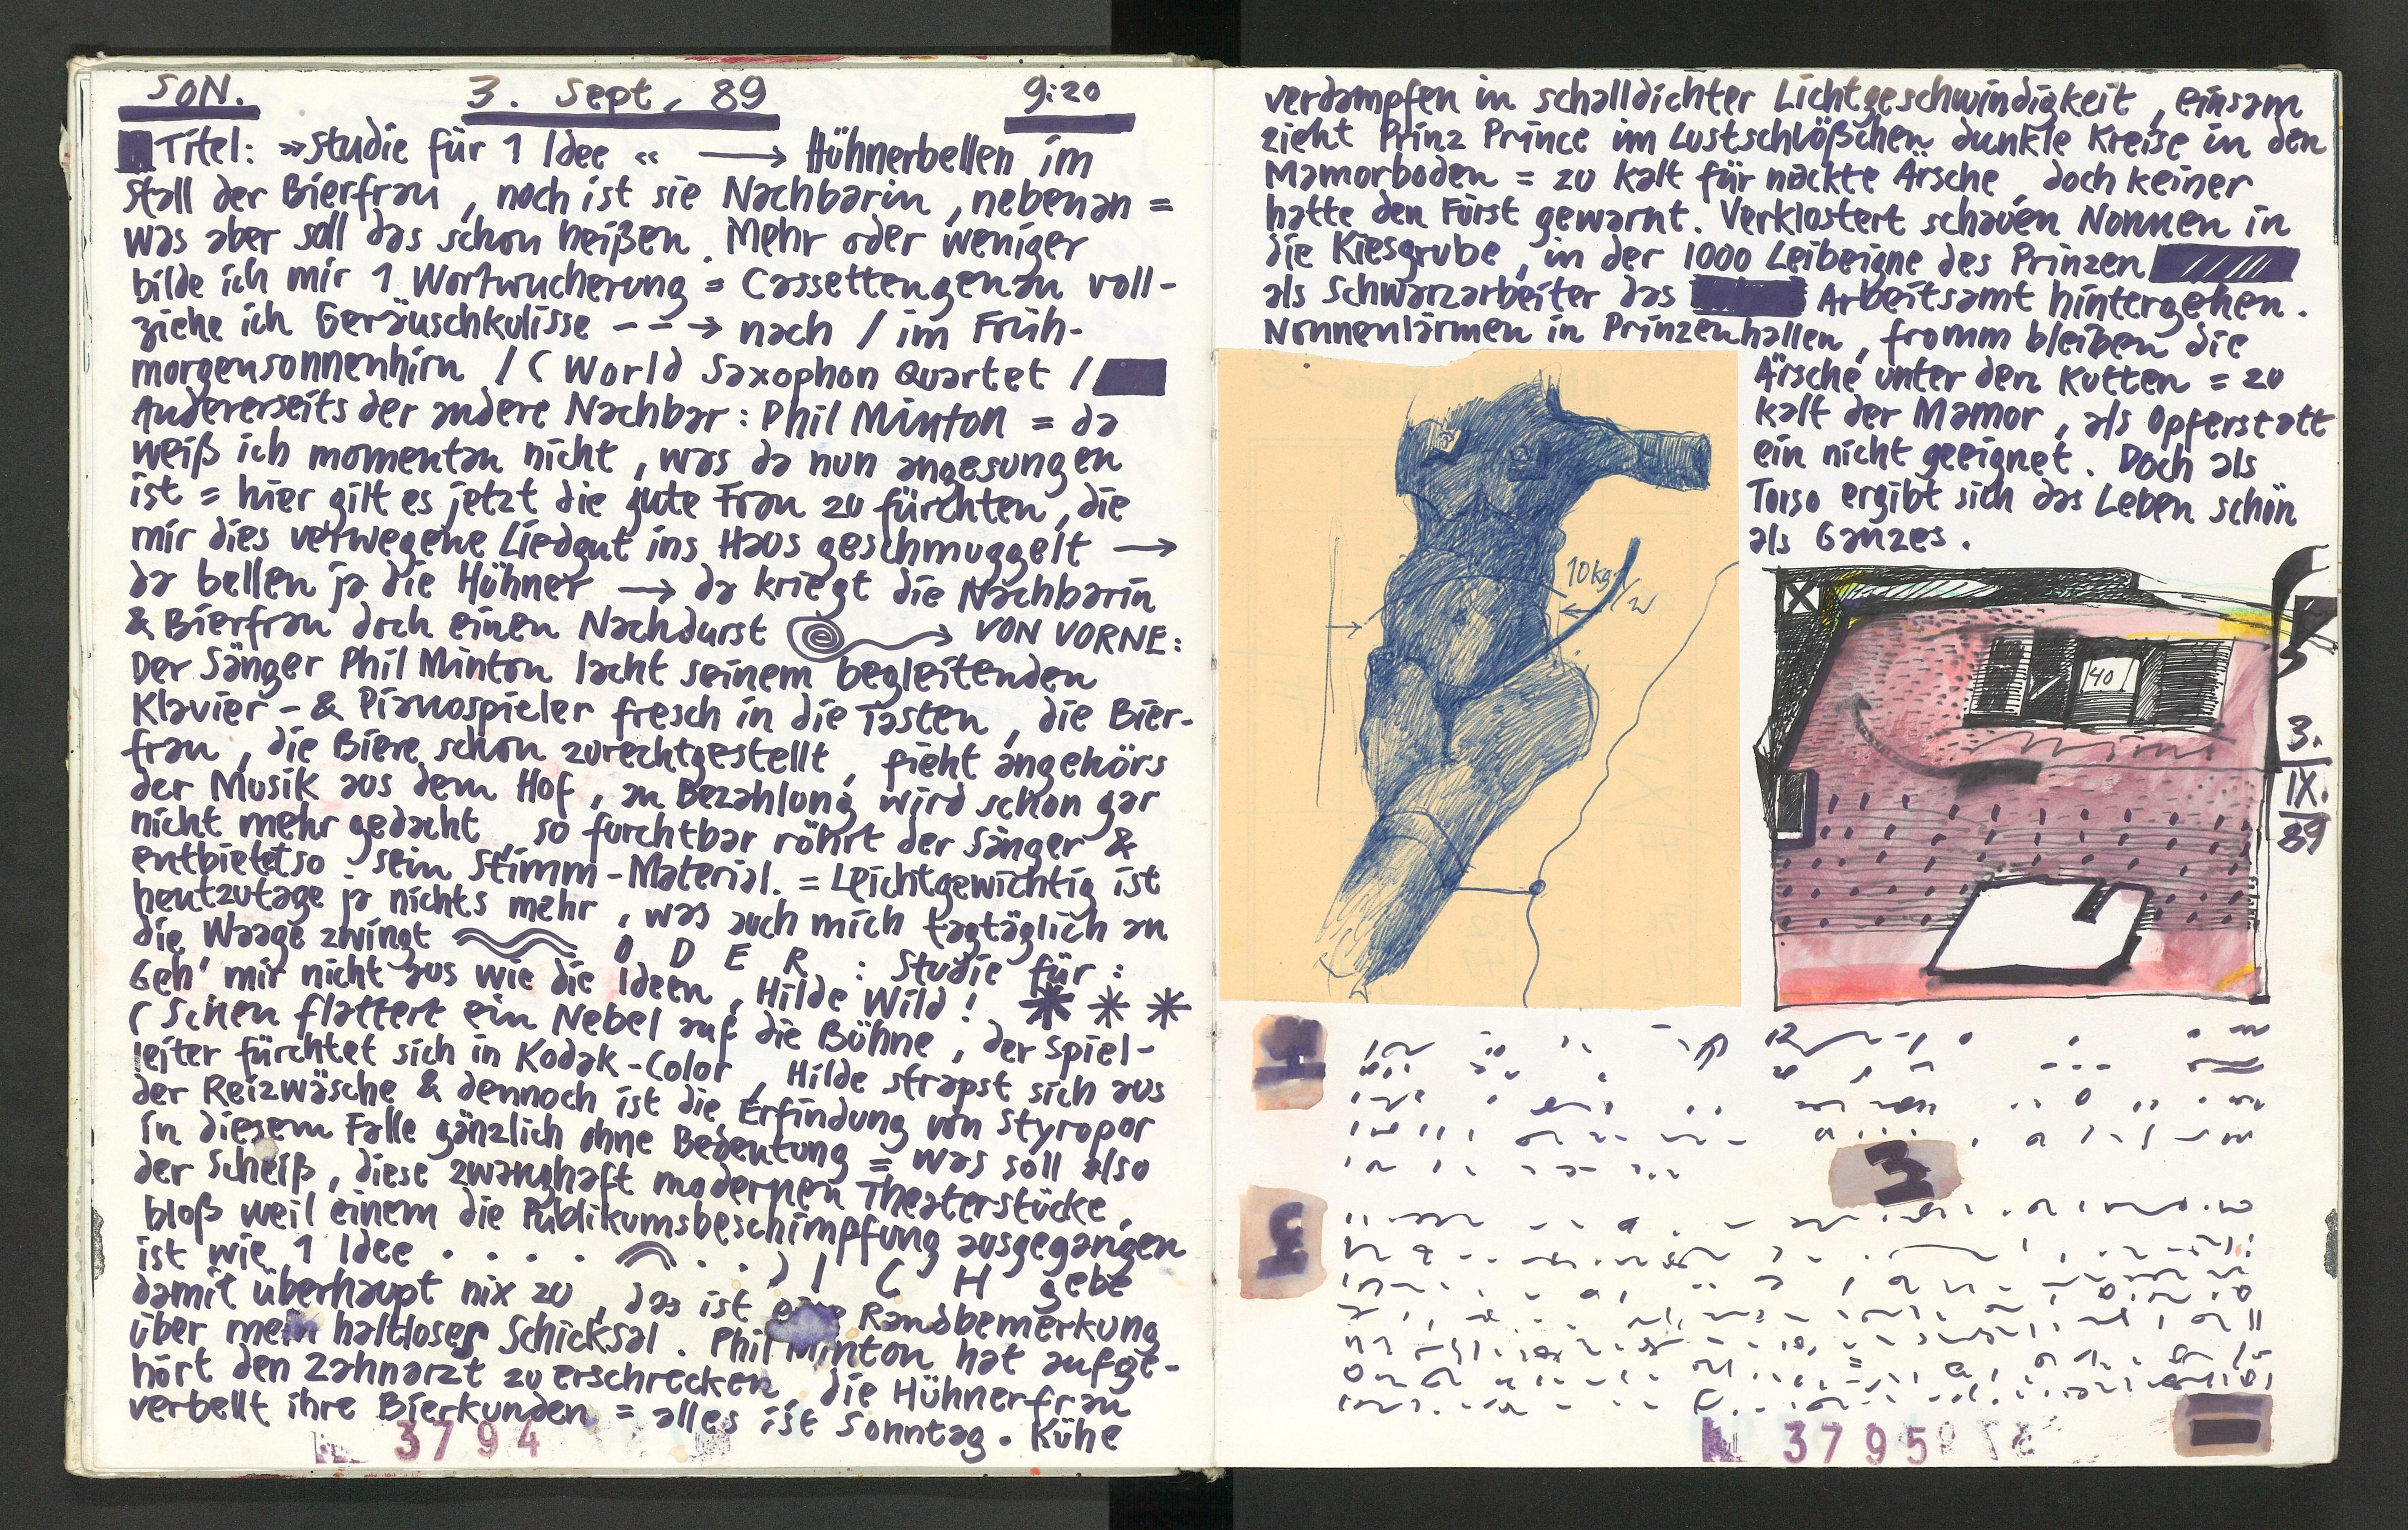 SON. 3. Sept. 89 9:20
Titel: »Studie für 1 Idee« ⟶ Hühnerbellen im
Stall der Bierfrau, noch ist sie Nachbarin, nebenan =
was aber soll das schon heißen. Mehr oder weniger
bilde ich mir 1 Wortwucherung = Cassettengenau voll-
ziehe ich Geräuschkulisse – – → nach / im Früh-
morgensonnenhirn / ( World Saxophon Quartet /
Andererseits der andere Nachbar: Phil Minton = da
weiß ich momentan nicht, was da nun angesungen
ist = hier gilt es jetzt die gute Frau zu fürchten, die
mir dies verwegene Liedgut ins Haus geschmuggelt ⟶
da bellen ja die Hühner ⟶ da kriegt die Nachbarin
& Bierfrau doch einen Nachdurst → VON VORNE:
Der Sänger Phil Minton lacht seinem begleitenden
Klavier- & Pianospieler fresch in die Tasten, die Bier-
frau, die Biere schon zurechtgestellt, fieht angehörs
der Musik aus dem Hof, an Bezahlung wird schon gar
nicht mehr gedacht, so furchtbar röhrt der Sänger &
entbietet so sein Stimm-Material. = Leichtgewichtig ist
heutzutage ja nichts mehr, was auch mich tagtäglich an
die Waage zwingt O D E R : Studie für :
Geh' mir nicht aus wie die Ideen, Hilde Wild! * * *
( Schen flattert ein Nebel auf die Bühne, der Spiel-
leiter fürchtet sich in Kodak-Color, Hilde strapst sich aus
der Reizwäsche & dennoch ist die Erfindung von Styropor
in diesem Falle gänzlich ohne Bedeutung = was soll also
der Scheiß, diese zwanghaft modernen Theaterstücke,
bloß weil einem die Publikumsbeschimpfung ausgegangen
ist wie 1 Idee . . . . . . ) I C H gebe
damit überhaupt nix zu, das ist eine Randbemerkung
über mein haltloses Schicksal. Phil Minton hat aufge-
hört den Zahnarzt zu erschrecken, die Hühnerfrau
verbellt ihre Bierkunden = alles ist Sonntag. Kühe
3794
verdampfen in schalldichter Lichtgeschwindigkeit, einsam
zieht Prinz Prince im Lustschlößchen dunkle Kreise in den
Mamorboden = zu kalt für nackte Ärsche, doch keiner
hatte den Fürst gewarnt. Verklostert schauen Nonnen in
die Kiesgrube, in der 1000 Leibeigne des Prinzen
als Schwarzarbeiter das Arbeitsamt hintergehen.
Nonnenlärmen in Prinzenhallen, fromm bleiben die
Ärsche unter den Kutten = zu
kalt der Mamor, als Opferstatt
ein nicht geeignet. Doch als
Torso ergibt sich das Leben schön
als Ganzes.
10kg
40
3.
IX.
89
3
3795